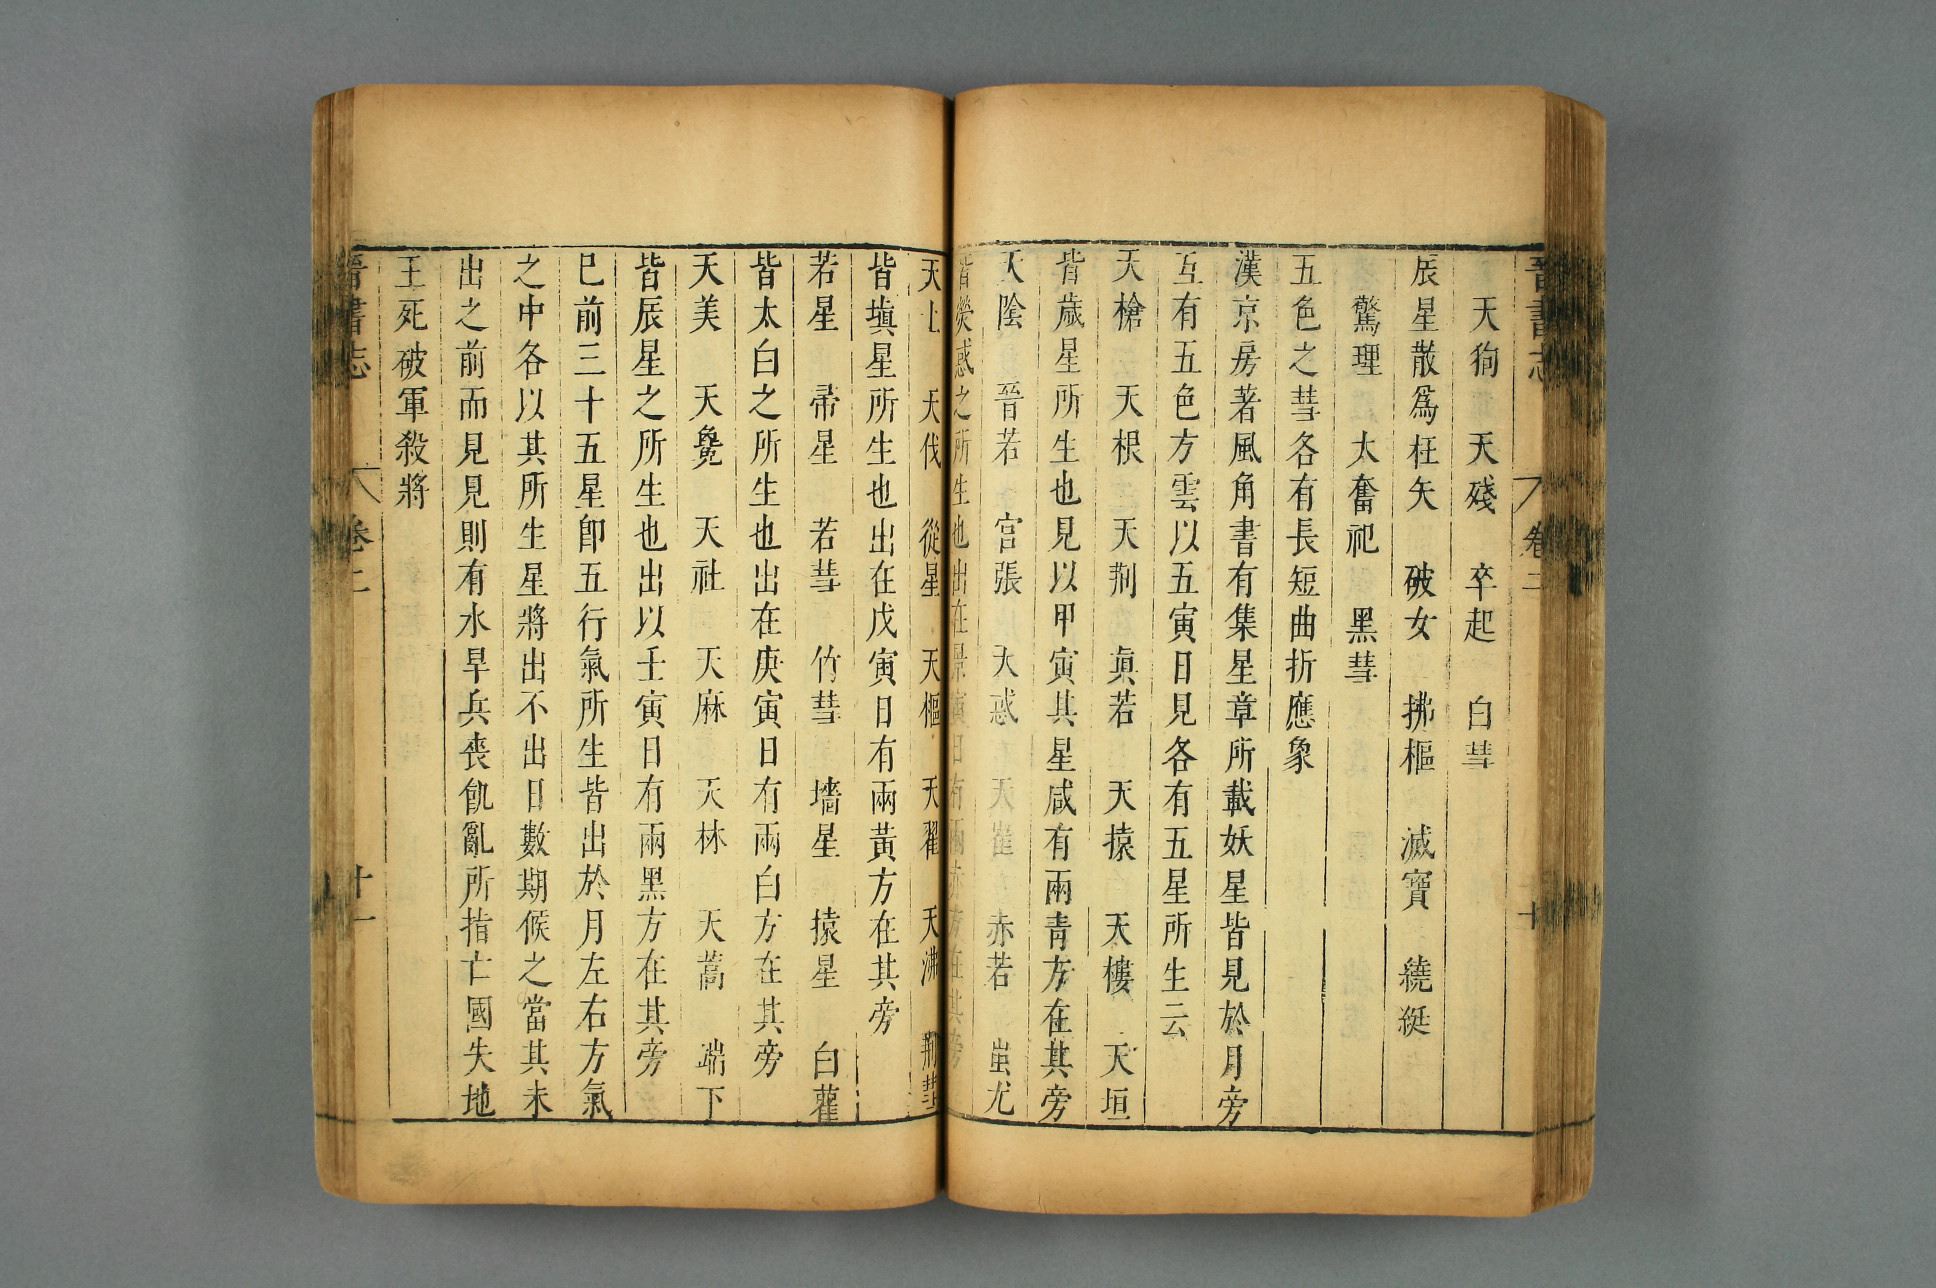 晉書志 卷二 十
天狗 天殘 卒起 白彗
辰星散爲枉矢 破女 拂樞 滅寶 繞綎
驚理 大奮祀 黑彗
五色之彗各有長短曲折應象
漢京房著風角書有集星章所載妖星皆見於月旁
互有五色方雲以五寅日見各有五星所生云
天槍 天根 天荆 真若 天猿 天樓 天垣
皆歲星所生也見以甲寅其星咸有兩青方在其旁
天陰 晉若 官張 天惑 天崔 赤若 蚩尤
皆熒惑之所生也出在景寅日有兩赤方在其旁
天上 天伐 從星 天樞 天翟 天沸 荆彗
皆塡星所生也出在戊寅日有兩黃方在其旁
若星 帚星 若彗 竹彗 墻星 猿星 白雚
皆太白之所生也出在庚寅日有兩白方在其旁
天美 天毚 天社 天麻 天林 天蒿 端下
皆辰星之所生也出以壬寅日有兩黑方在其旁
已前三十五星卽五行氣所生皆出於月左右方氣
之中各以其所生星將出不出日數期候之當其未
出之前而見見則有水旱兵喪飢亂所指亡國失地
王死破軍殺將
晉書志 卷二 十一